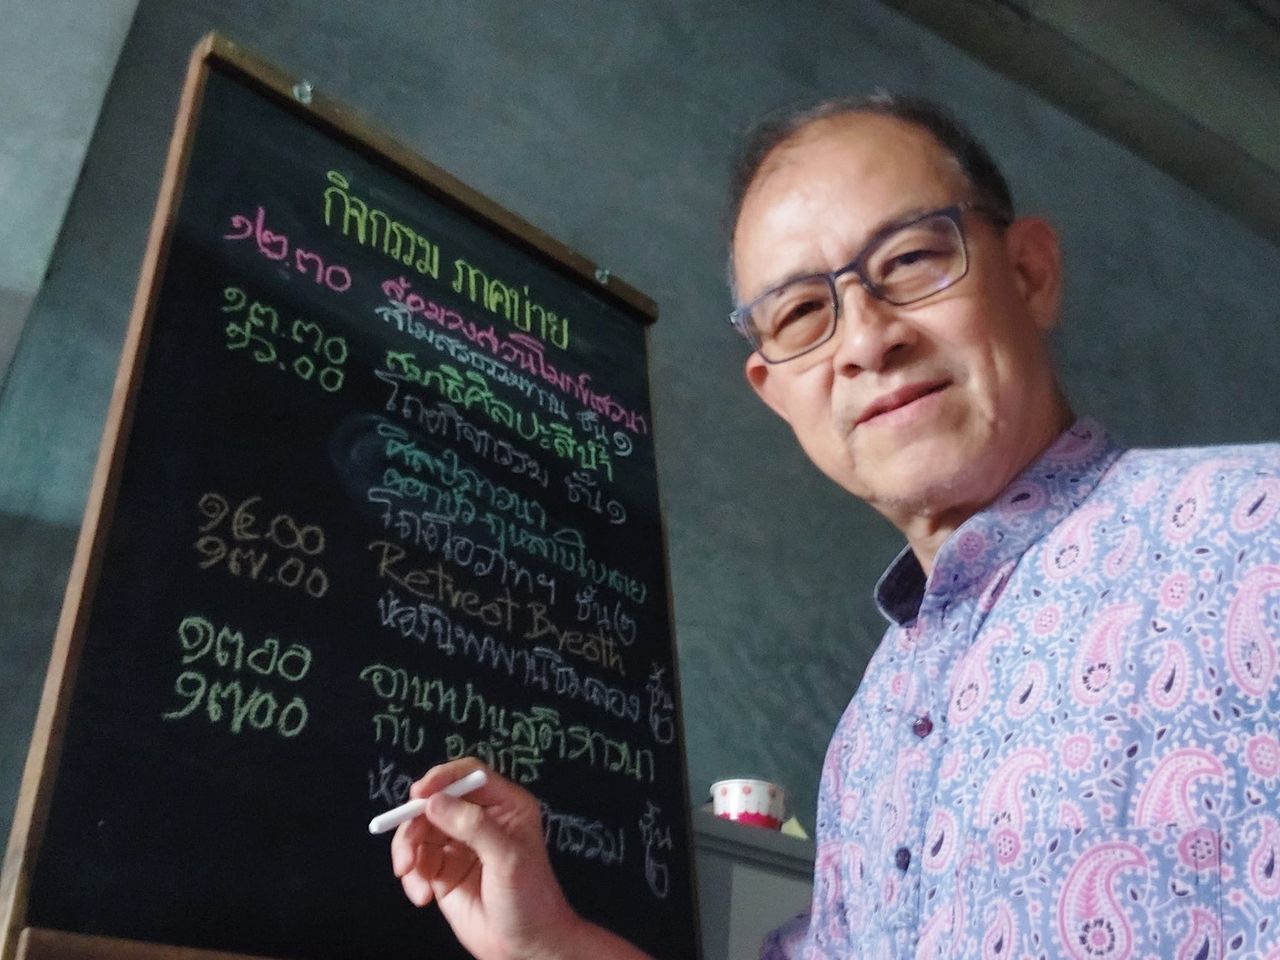 กิจกรรม ภาคบ่าย
๑๒.๓๐ ล้อมวงสวนโมกข์เสวนา
สโมสรธรรมทาน ชั้น ๑
๑๓.๓๐ สมาธิศิลปะสีชา
๑๖.๐๐ โถงกิจกรรม ชั้น ๑
ศิลป์ภาวนา
ดอกบัว กุหลาบใบเตย
โถงโอวาทฯ ชั้น ๒
๑๕.๐๐ Retreat Breath
๑๗.๐๐ ห้องนิพพานชิมลอง ชั้น ๒
๑๓๐๐ อานาปานสติภาวนา
๑๗๐๐ กับ
ธรรม ชั้น ๒